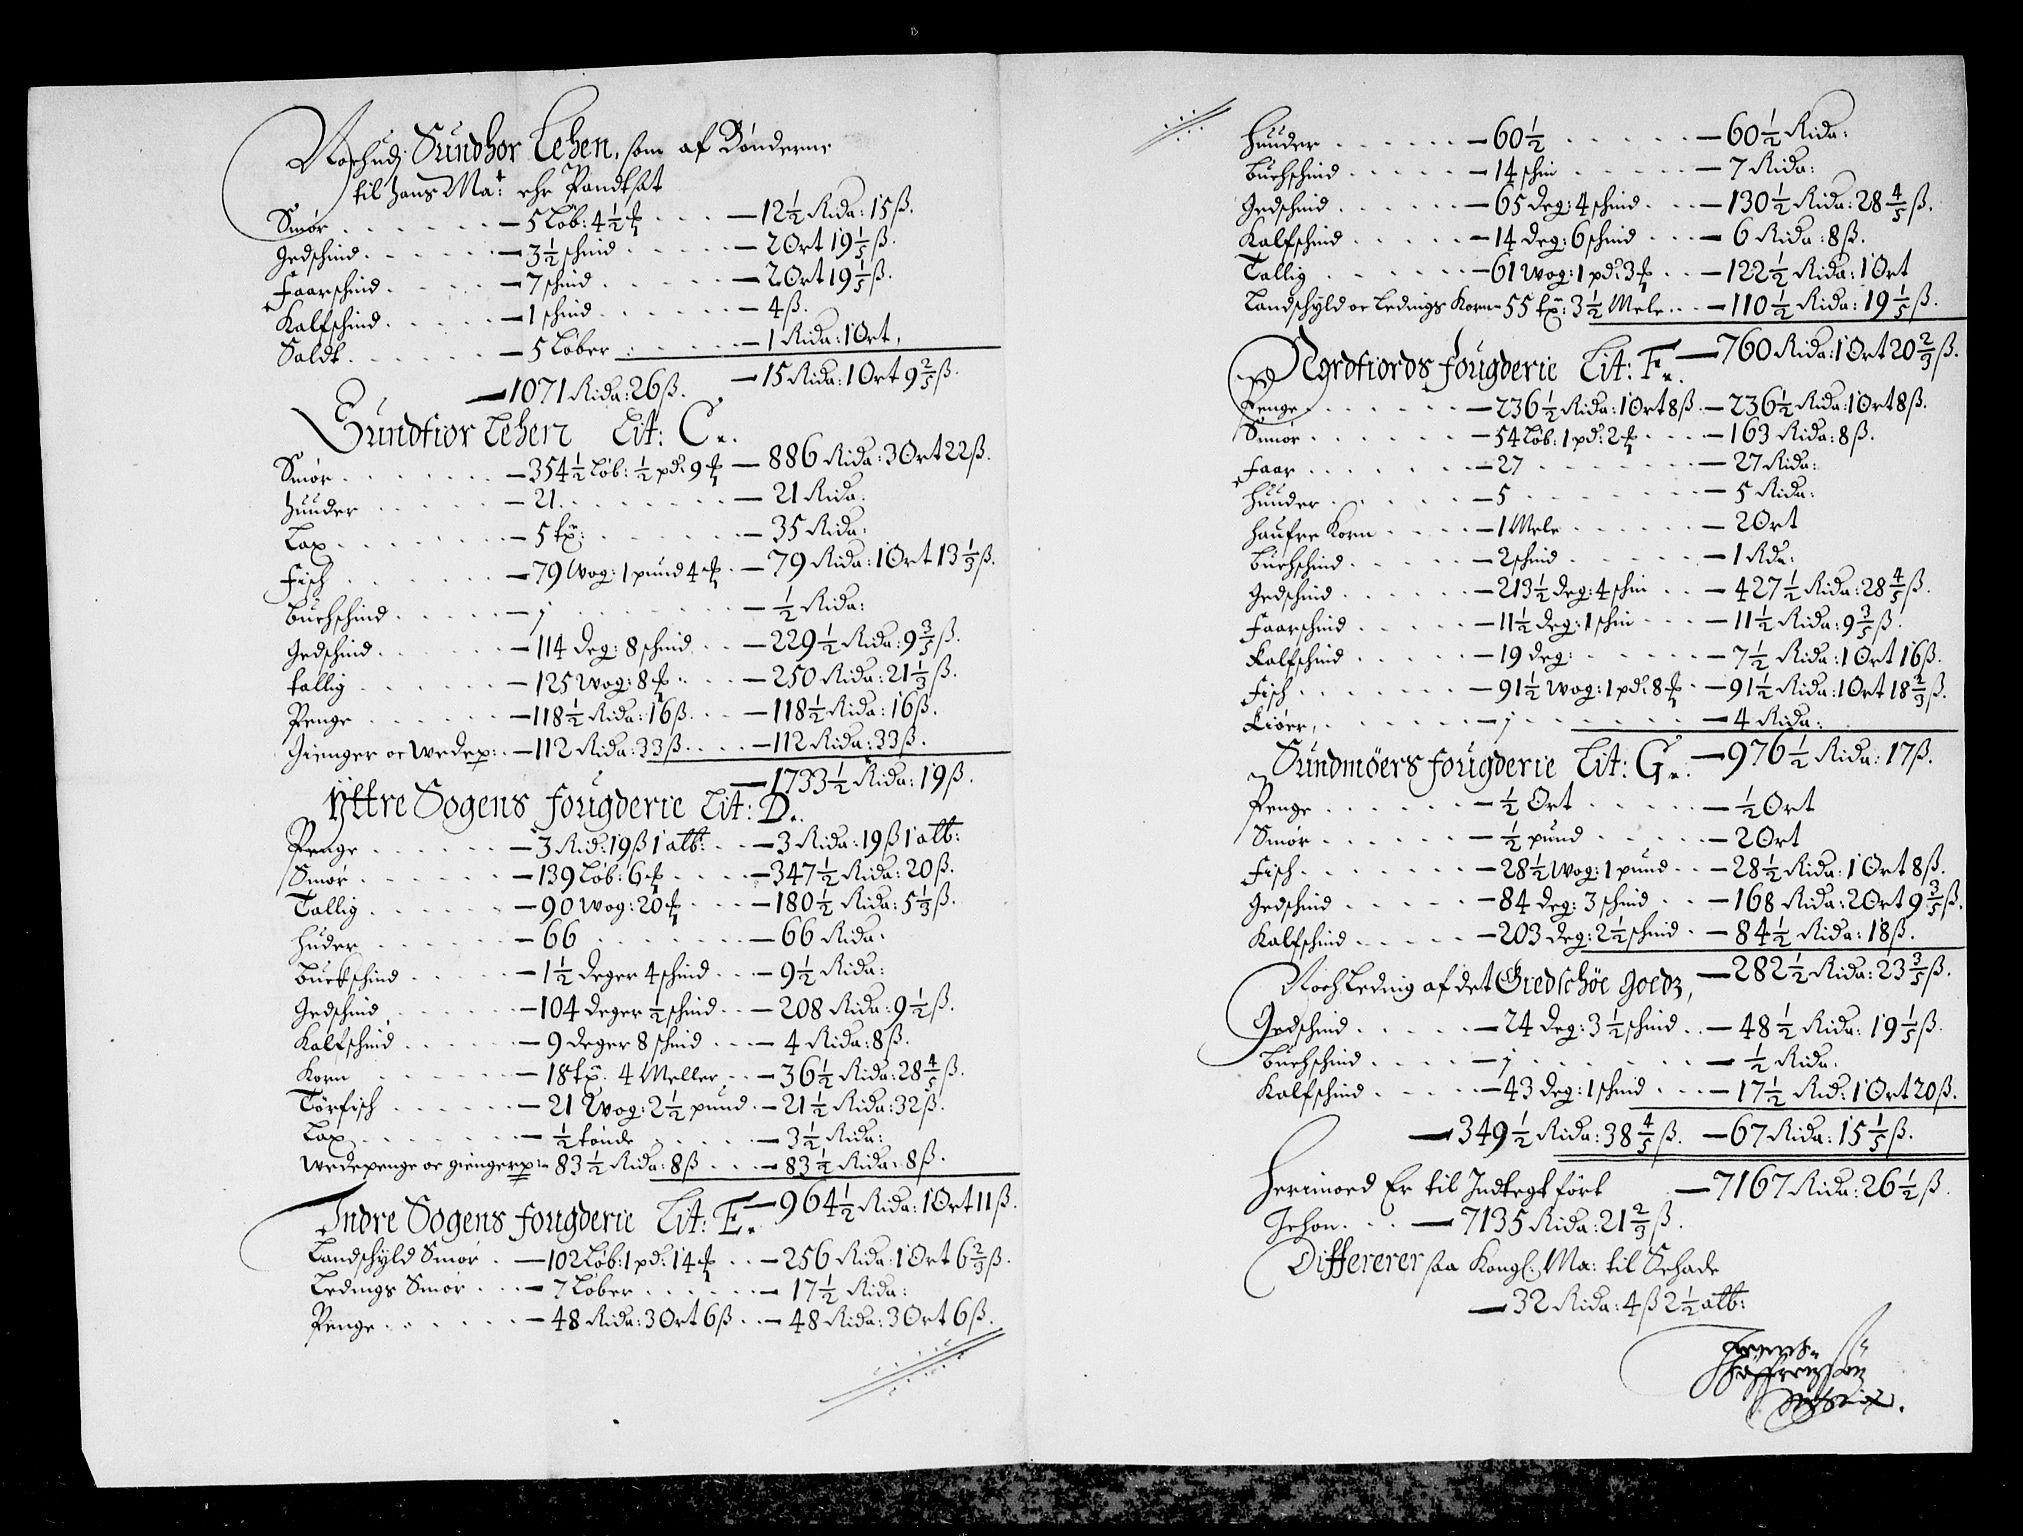 Noch udj Sundhor Lehen, som af Bønderne
til hans Ma:t ehr Pandtsat
Smør — 5 Løb: 4½ ℔ — 12½ Rida: 15 ß.
Gedschind — 3½ schind — 2 Ort 19 1/5 ß.
Faarschind — 7 schind — 2 Ort 19 1/5 ß.
Kalfschind — 1 schind — 4 ß.
Saldt — 5 Løber — 1 Rida: 1 Ort,
— 1071 Rida: 26 ß. — 15 Rida: 1 Ort 9 2/5 ß.
Sundfior Lehen Lit: C.
Smør — 354½ Løb: ½ pd: 9 ℔ — 886 Rida: 3 Ort 22 ß.
Huuder — 21. — 21 Rida:
Lax — 5 tn: — 35 Rida:
Fisch — 79 Wog: 1 pund 4 ℔ — 79 Rida: 1 Ort 13 1/3 ß.
Buchschind — j — ½ Rida:
Gedschind — 114 deg: 8 schind — 229½ Rida: 9 3/5 ß.
Tallig — 125 Wog: 8 ℔ — 250 Rida: 21 1/3 ß.
Penge — 118½ Rida: 16 ß. — 118½ Rida: 16 ß.
Gienger oc Wedep: — 112 Rida: 33 ß. — 112 Rida: 33 ß.
— 1733½ Rida: 19 ß.
Yttre Sogens fougderie Lit: D.
Penge — 3 Rid: 19 ß 1 alb: — 3 Rida: 19 ß 1 alb:
Smør — 139 Løb: 6 ℔ — 347½ Rida: 20 ß.
Tallig — 90 Wog: 20 ℔ — 180½ Rida: 5 1/3 ß.
Huder — 66 — 66 Rida:
Buckschind — 1½ deger 4 schind — 9½ Rida:
Gedschind — 104 deger ½ schind — 208 Rida: 9½ ß.
Kalfschind — 9 deger 8 schind — 4 Rida: 8 ß.
Korn — 18 tn: 4 Meller — 36½ Rida: 28 4/5 ß.
Törfisch — 21 Wog: 2½ pund — 21½ Rida: 32 ß.
Lax — ½ tønde — 3½ Rida:
Wedepenge oc giengerp: — 83½ Rida: 8 ß — 83½ Rida: 8 ß.
— 964½ Rida: 1 Ort 11 ß.
Indre Sogens fougderie Lit: E.
Landschyld Smør — 102 Løb: 1 pd: 14 ℔ — 256 Rida: 1 Ort 6 2/3 ß.
Ledings Smør — 7 Løber — 17½ Rida:
Penge — 48 Rida: 3 Ort 6 ß — 48 Rida: 3 Ort 6 ß.
Huuder — 60½ — 60½ Rida:
Buchschind — 14 schin — 7 Rida:
Gedschind — 65 deg: 4 schind — 130½ Rida: 28 4/5 ß.
Kalfschind — 14 deg: 6 schind — 6 Rida: 8 ß.
Tallig — 61 Wog: 1 pd: 3 ℔ — 122½ Rida: 1 Ort
Landschyld oc Ledings Korn — 55 tn: 3½ Mele — 110½ Rida: 19 1/5 ß.
— 760 Rida: 1 Ort 20 2/3 ß.
Nordfiords fougderie Lit: F.
Penge — 236½ Rida: 1 Ort 8 ß. — 236½ Rida: 1 Ort 8 ß.
Smør — 54 Løb: 1 pd: 2 ℔ — 163 Rida: 8 ß.
Faar — 27 — 27 Rida:
Huuder — 5 — 5 Rida:
Haufre Korn — 1 Mele — 2 Ort
Buchschind — 2 schind — 1 Rda:
Gedschind — 213½ deg: 4 schin — 427½ Rida: 28 4/5 ß.
Faarschind — 11½ deg: 1 schin — 11½ Rida: 9 3/5 ß.
Kalfschind — 19 deg: — 7½ Rida: 1 Ort 16 ß.
Fisch — 91½ Wog: 1 pd: 8 ℔ — 91½ Rida: 1 Ort 18 2/3 ß.
Kiøer, — j — 4 Rida:
— 976½ Rida: 17 ß.
Sundmøers fougderie Lit: G.
Penge — ½ Ort — ½ Ort
Smør — ½ pund — 2 Ort
Fisch — 28½ Wog: 1 pund — 28½ Rida: 1 Ort 8 ß.
Gedschind — 84 deg: 3 schind — 168 Rida: 2 Ort 9 3/5 ß.
Kalfschind — 203 deg: 2½ schind — 84½ Rida: 18 ß.
— 282½ Rida: 23 3/5 ß.
Noch Leding af det Giedschøe Goedz,
Gedschind — 24 deg: 3½ schind — 48½ Rida: 19 1/5 ß.
Buchschind — j — ½ Rida:
Kalfschind — 43 deg: 1 schind — 17½ Rid: 1 Ort 20 ß.
— 349½ Rida: 38 4/5 ß. — 67 Rida: 15 1/5 ß.
Herimoed Er til Indtegt ført — 7167 Rida: 26½ ß.
Ichon — 7135 Rida: 21 2/3 ß.
Differerer saa Kongl. Ma: til Schade
— 32 Rida: 4 ß 2½ alb: